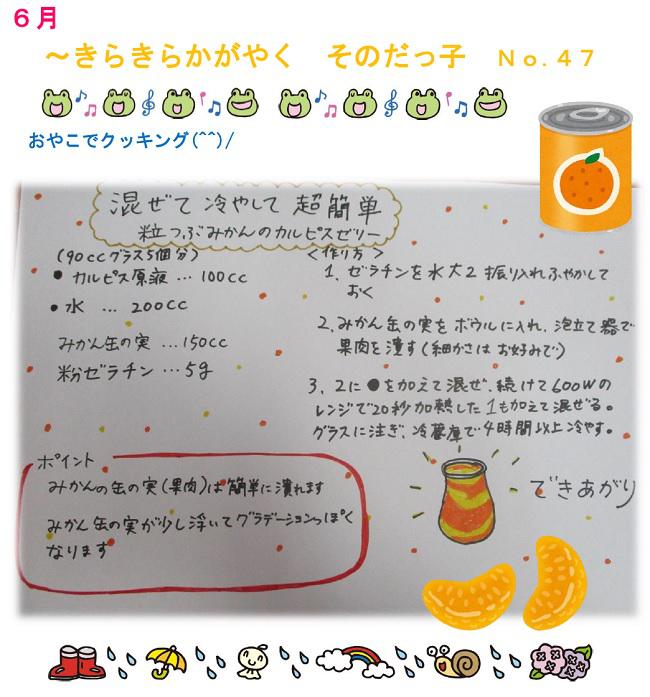 6月
～きらきらかがやく そのだっ子 No.47
おやこでクッキング(^^)/
混ぜて 冷やして 超簡単
粒つぶみかんのカルピスゼリー
(90ccグラス5個分)
● カルピス原液 … 100cc
● 水 … 200cc
みかん缶の実 … 150cc
粉ゼラチン … 5g
＜作り方＞
1、ゼラチンを水大2 振り入れふやかして
おく
2、みかん缶の実をボウルに入れ、泡立て器で
果肉を潰す(細かさはお好みで)
3、2に●を加えて混ぜ、続けて600Wの
レンジで20秒加熱した1も加えて混ぜる。
グラスに注ぎ、冷蔵庫で4時間以上冷やす。
ポイント
みかんの缶の実(果肉)は簡単に潰れます
みかん缶の実が少し浮いてグラデーションっぽく
なります
できあがり